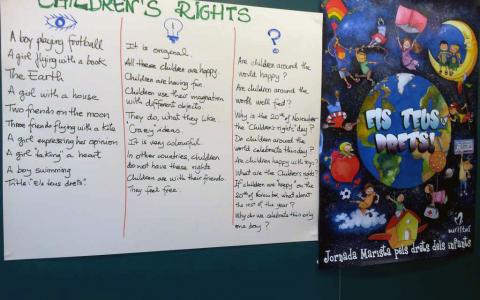 CHILDREN'S RIGHTS
A boy playing football
A girl flying with a book
The Earth
A girl with a house
Two friends on the moon
Three friends flying with a kite
A girl expressing her opinion
A girl "taking" a heart
A boy swimming
Title: "Els teus drets"
It is original.
All these children are happy.
Children are having fun.
Children use their imagination
with different objects.
They do, what they like
"Crazy" ideas.
It is very colourful.
In other countries, children
do not have these rights
Children are with their friends.
They feel free.
?
Are children around the
world happy?
Are children around the
world well fed?
Why is the 20th of November
the "Children's rights" day?
Do children around the
world celebrate this day?
Are children happy with toys?
What are the Children's rights?
If children are "happy" on the
20th of November, what about
the rest of the year?
Why do we celebrate this only
one day?
ELS TEUS
DRETS!
Jornada Marista pels drets dels infants